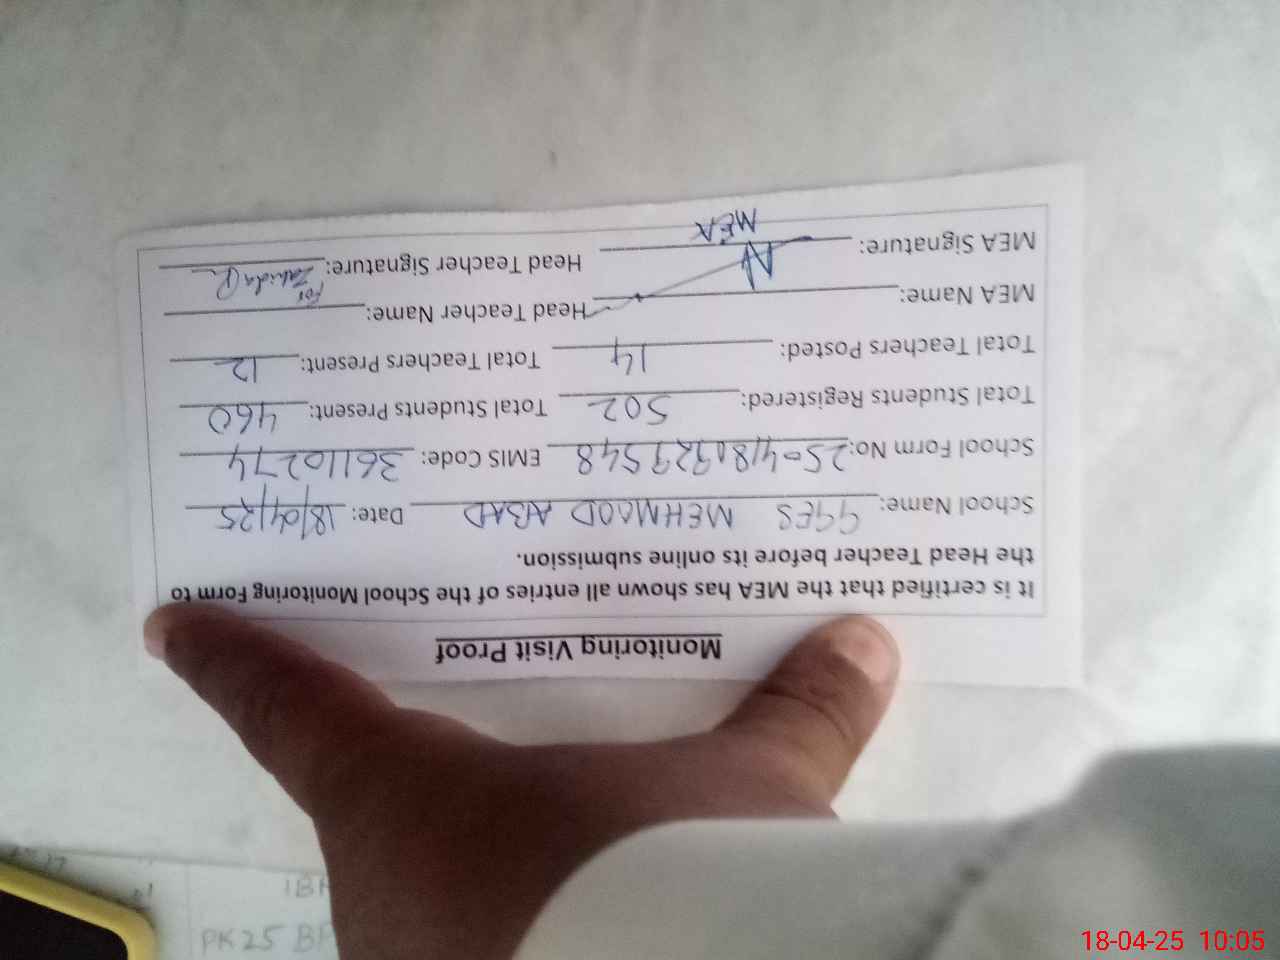 Monitoring Visit Proof
It is certified that the MEA has shown all entries of the School Monitoring Form to
the Head Teacher before its online submission.
School Name: GGES MEHMOOD ABAD Date: 18/04/25
School Form No: EMIS Code: 36110274
Total Students Registered: 502 Total Students Present: 460
Total Teachers Posted: 14 Total Teachers Present: 12
MEA Name: Head Teacher Name:
MEA Signature: MEA Head Teacher Signature: For Zahida
PK25
18-04-25 10:05